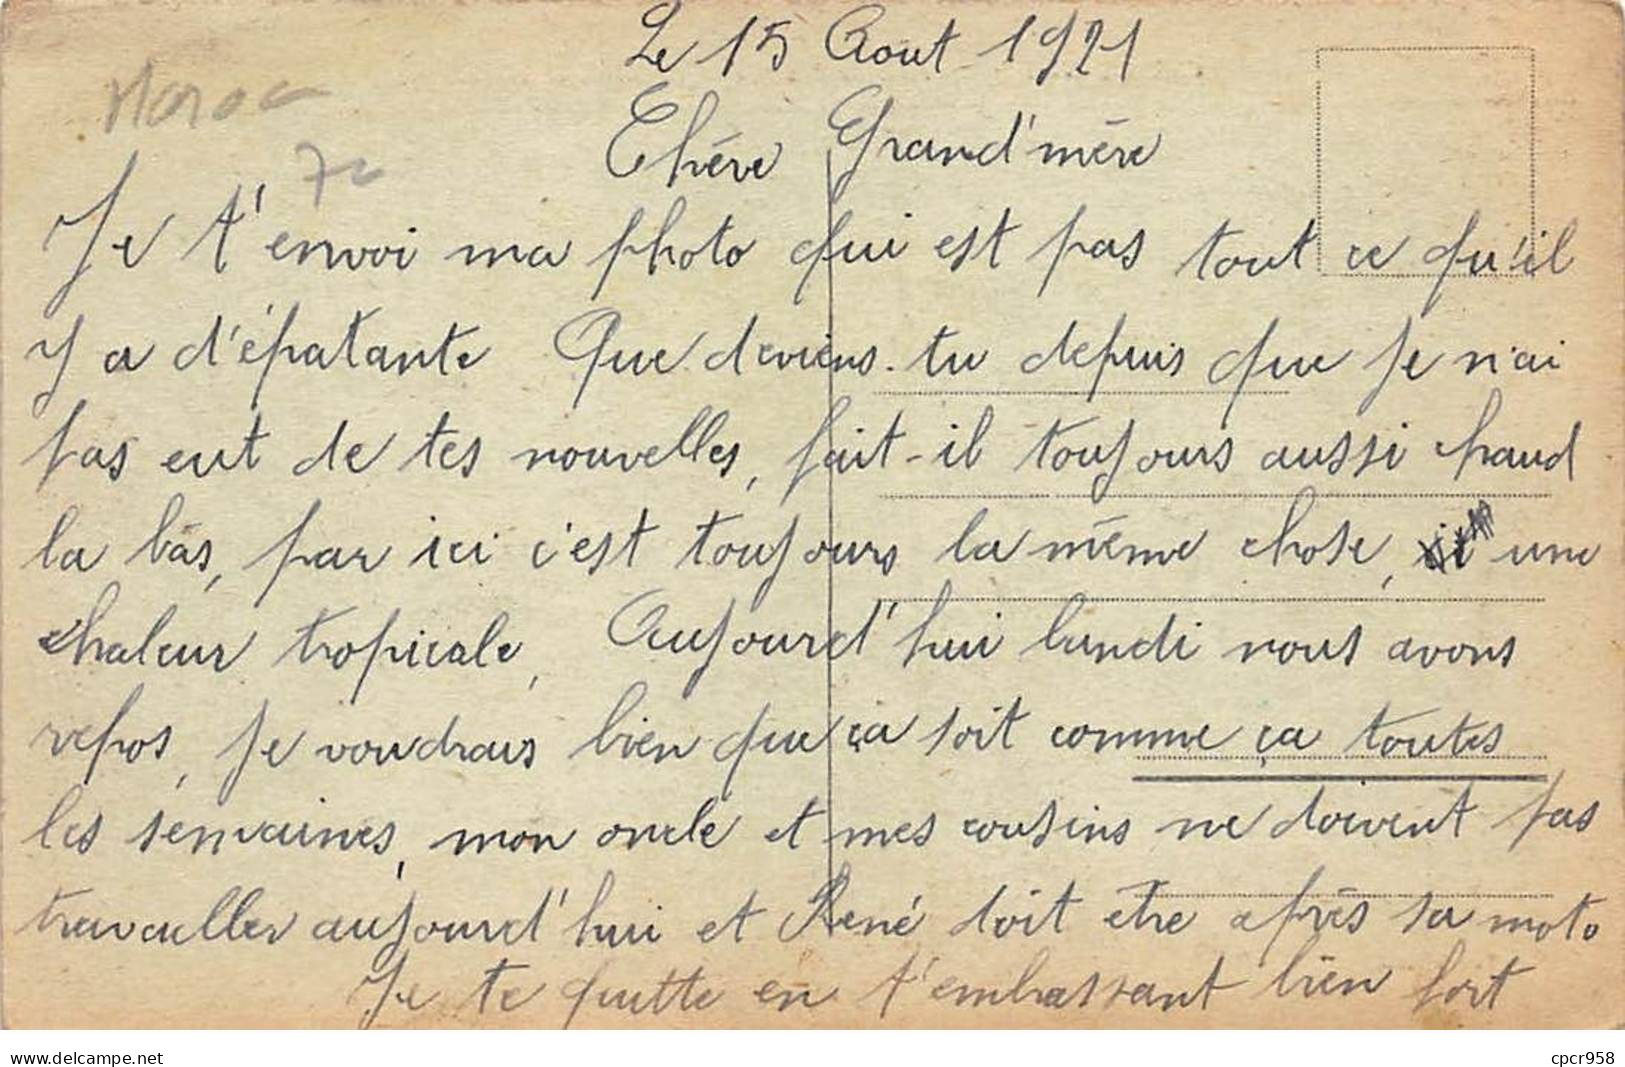 Le 15 Aout 1921
Maroc
Chère Grand'mère
Je t'envoi ma photo qui est pas tout ce qu'il
y a d'épatante Que deviens-tu depuis que je n'ai
pas eut de tes nouvelles, fait-il toujours aussi chaud
la bas, par ici c'est toujours la même chose, une
chaleur tropicale, Aujourd'hui lundi nous avons
repos, je voudrais bien que ça soit comme ça toutes
les semaines, mon oncle et mes cousins ne doivent pas
travailler aujourd'hui et René doit etre après sa moto
Je te quitte en t'embrassant bien fort
www.delcampe.net
cpcr958